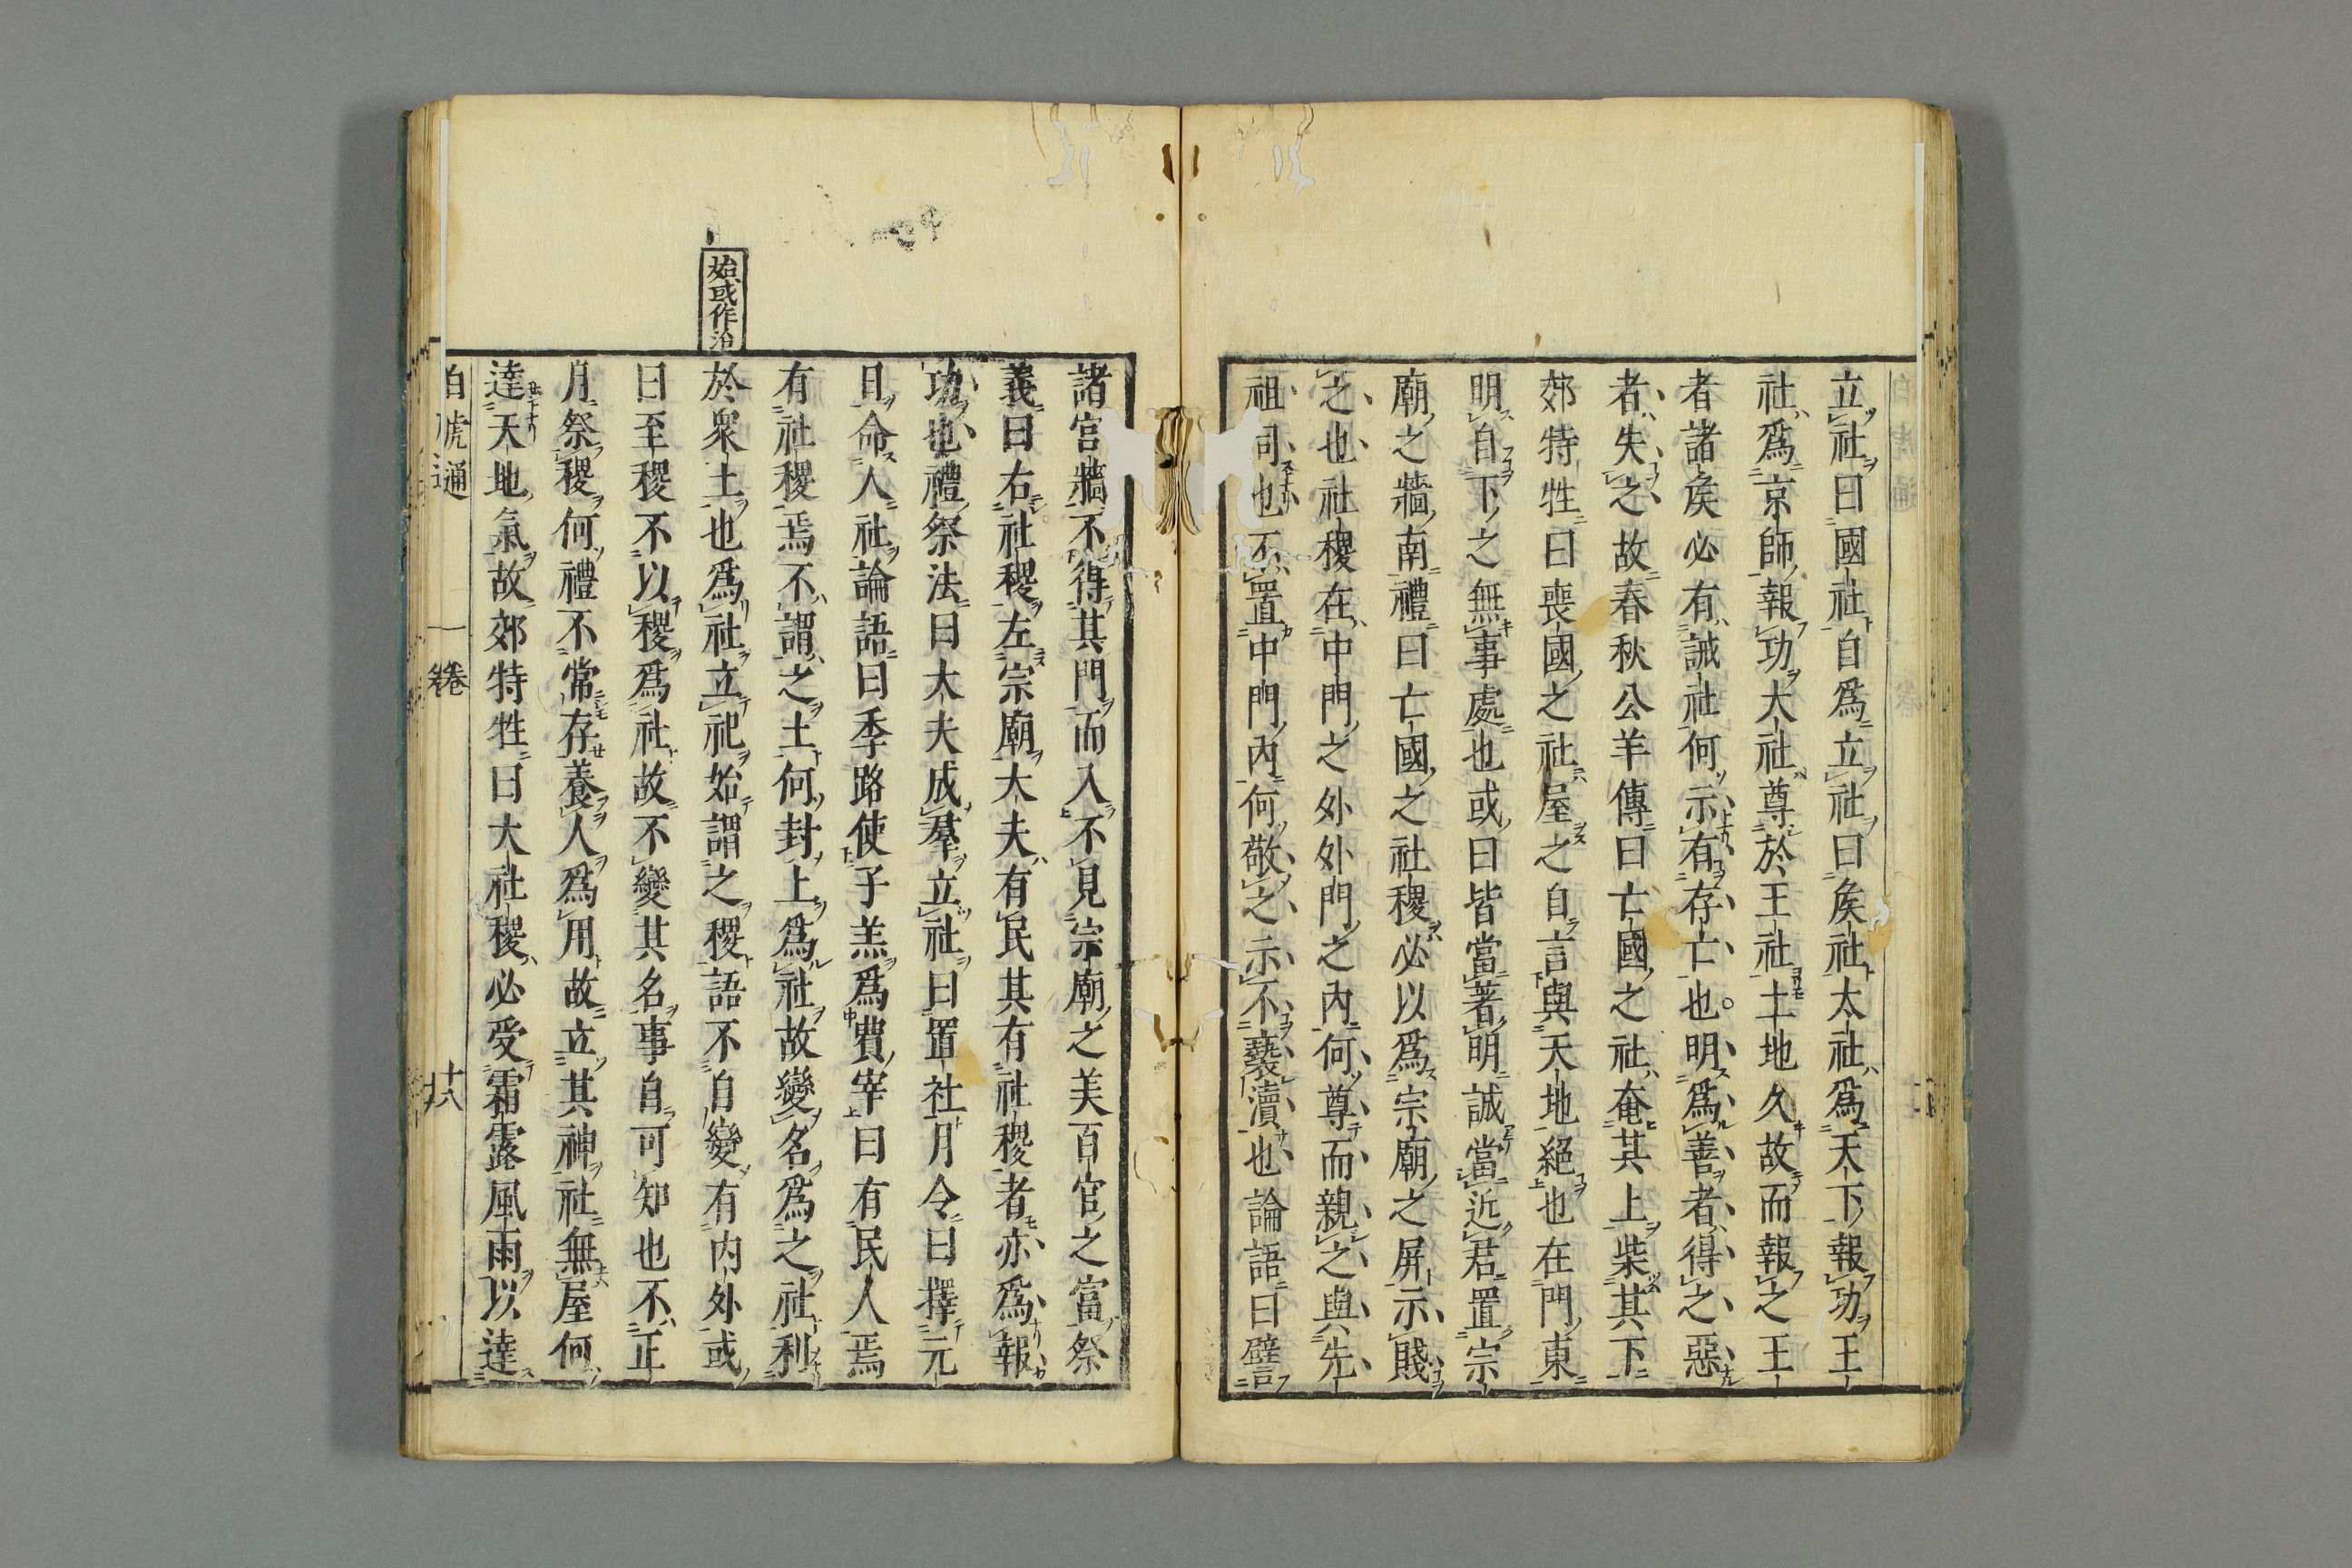 立社曰國社自爲立社曰矦社太社爲天下報功王
社爲京師報功大社尊於王社土地久故而報之王
者諸矦必有誡社何示有存亡也明爲善者得之惡
者失之故春秋公羊傳曰亡國之社奄其上柴其下
郊特牲曰喪國之社屋之自言與天地絕也在門東
明自下之無事處也或曰皆當著明誠當近君置宗
廟之牆南禮曰亡國之社稷必以爲宗廟之屏示賤
之也社稷在中門之外外門之內何尊而親之與先
祖同也不置中門內何敬之示不褻瀆也論語曰譬
諸宮牆不得其門而入不見宗廟之美百官之富祭
義曰右社稷左宗廟大夫有民其有社稷者亦爲報
功也禮祭法曰大夫成羣立社曰置社月令曰擇元
日命人社論語曰季路使子羔爲費宰曰有民人焉
有社稷焉不謂之土何封上爲社故變名爲之社利
於衆土也爲社立祀始謂之稷語不自變有內外或
曰至稷不以稷爲社故不變其名事自可知也不正
月祭稷何禮不常存養人爲用故立其神社無屋何
達天地氣故郊特牲曰大社稷必受霜露風雨以達
始或作治
白虎通
一卷
十六